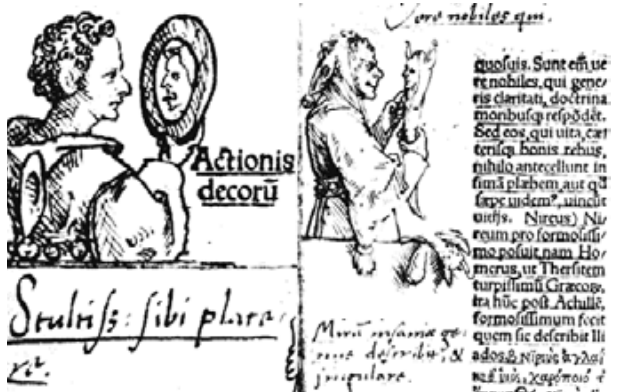 Actionis
decorū
Stultiss: sibi place
re.
Vere nobiles qui.
quosuis. Sunt em̄ ue
re nobiles, qui gene
ris claritati, doctrina
moribusq; respōdēt.
Sed eos, qui uita, cæt
terisq; bonis rebus,
nihilo antecellunt in
fimā plæbem, aut qđ
sæpe uidem⁹, uincūt
uitijs. Nireus) Ni
reum pro formosissi
mo posuit, nam Ho
merus, ut Thersitem
turpissimū Græcorꝝ,
ita hūc post Achillē,
formosissimum fecit
quem sic describit Ili
ados.β Νιρεὺς ἀγλαί
Mirū insaniæ ge
nus describit, &
singulare.